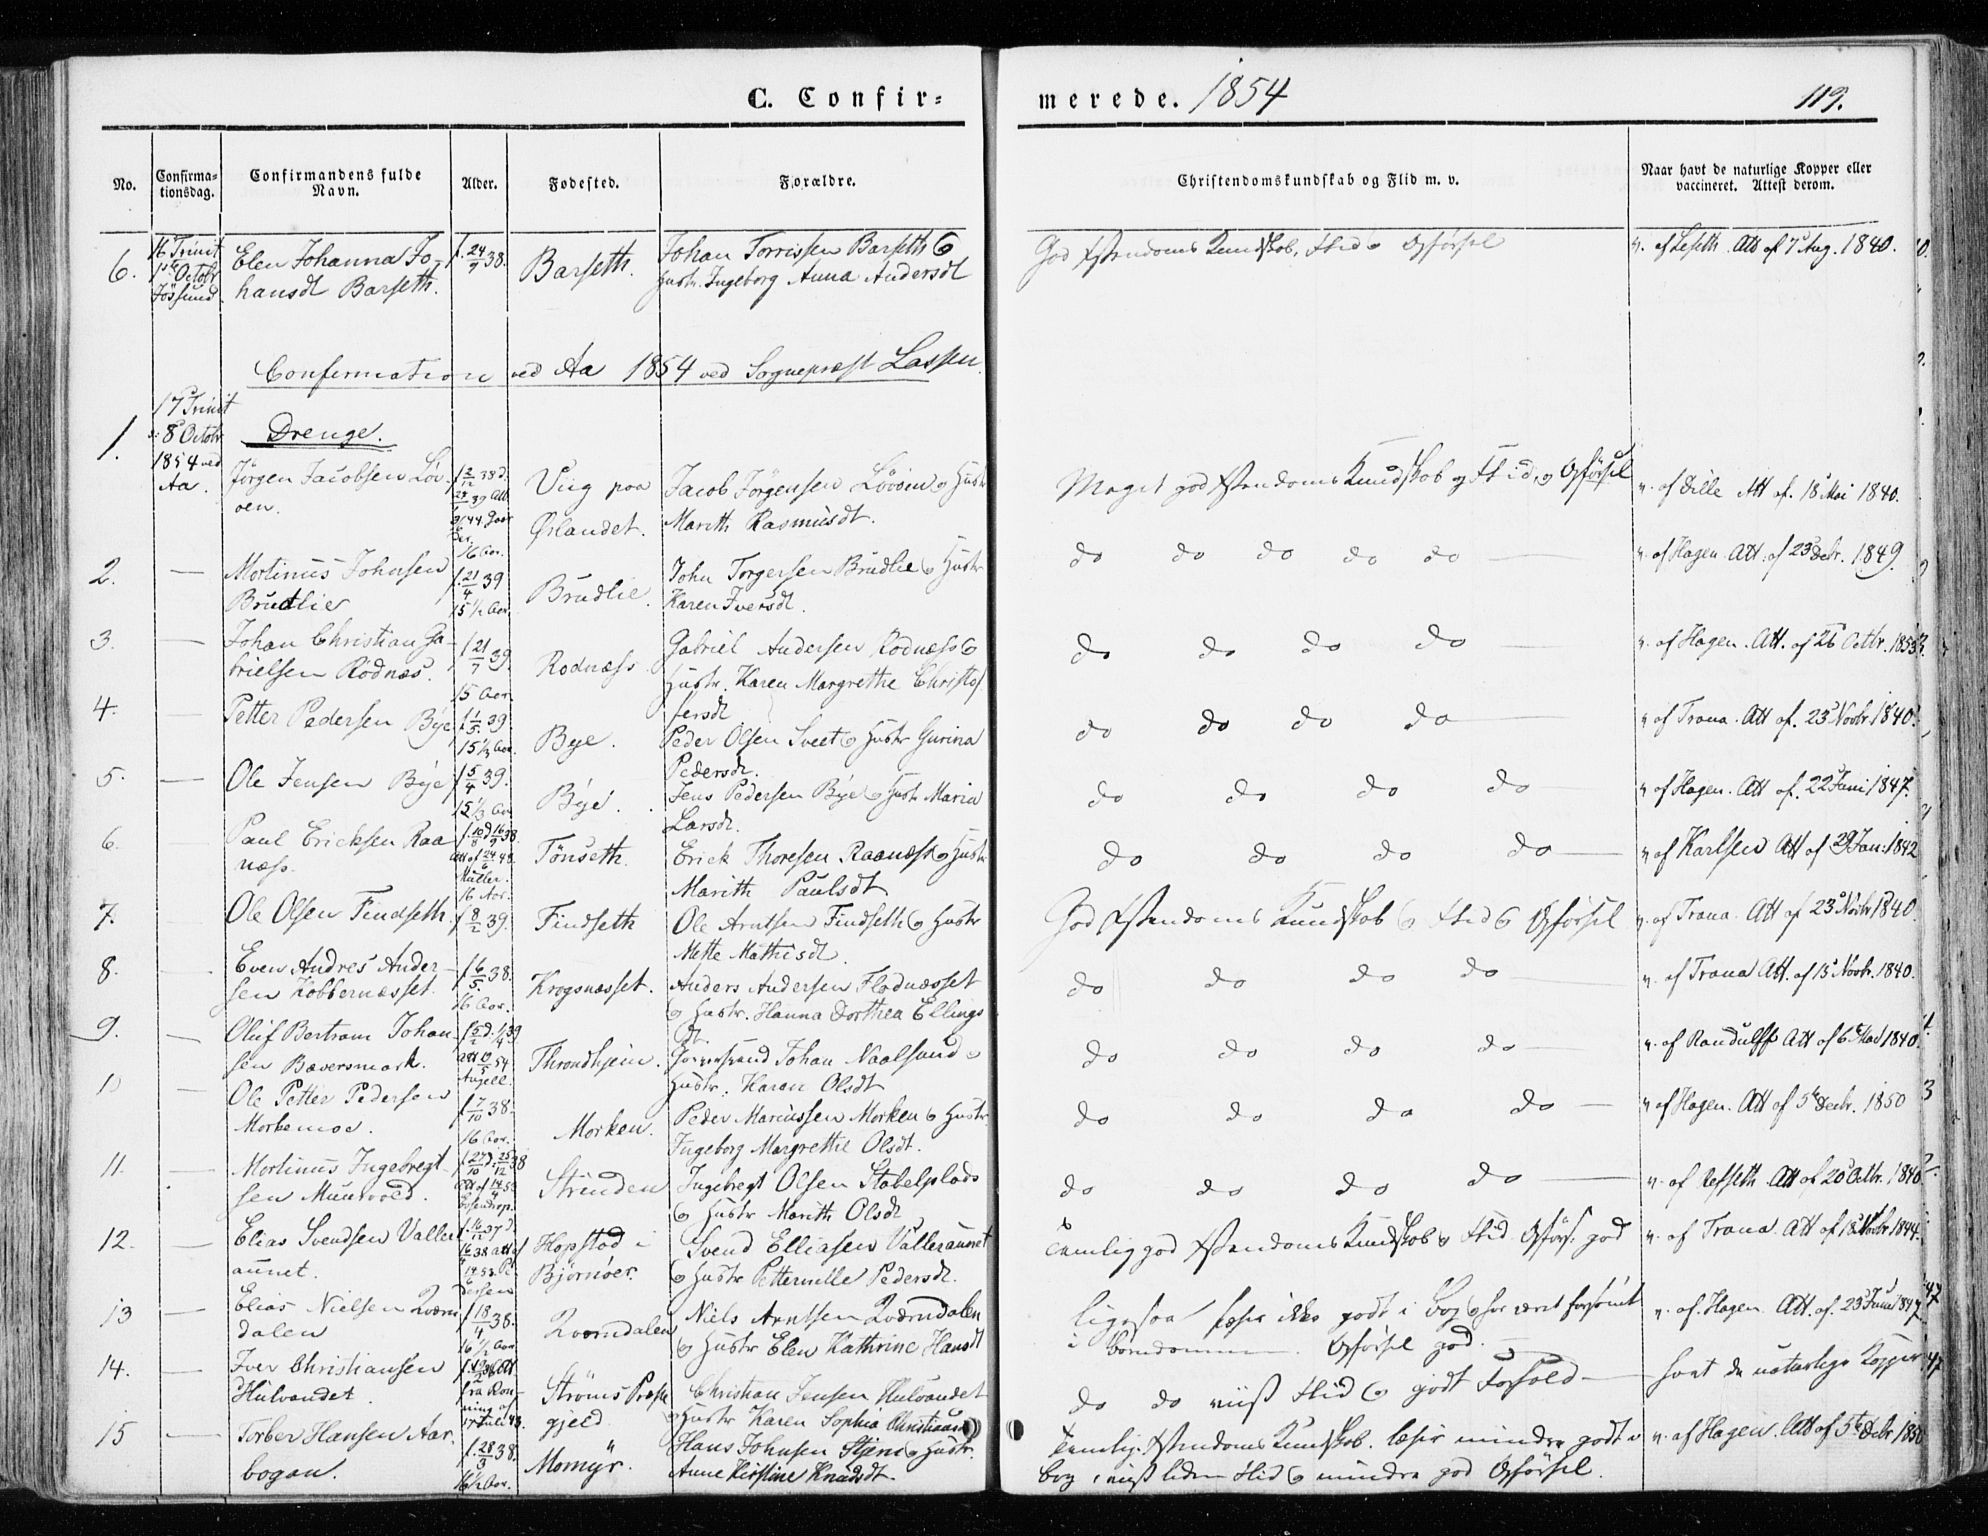 C. Confirmerede. 1854
119.
No. Confirmationsdag. Confirmandens fulde Navn. Alder. Fødested. Forældre. Christendomskundskab og Flid m. v. Naar havt de naturlige Kopper eller vaccineret. Attest derom.
6. 16 Trinit 1ste Octobr Jøssund Elen Johanna Johansdt Barseth. f. 24/9 38. Barseth. Johan Torrissen Barseth & Hustr. Ingeborg Anna Andersdt God Xstendoms Kundskob, Flid & Opførsel v. af Lefseth. Att af 7 Aug. 1840.
Confirmation ved Aa 1854 ved Sognepræst Lassen.
Drenge.
1. 17 Trinit 8 Octobr 1854 ved Aa. Jørgen Jacobsen Løvøen. 16 Aar. Viig paa Ørlandet. Jacob Jørgensen Løvøen & Hustr Marith Rasmusdt. Meget god Xstendoms Kundskob og Flid, & Opførsel v. af Dille Att af. 18 Mai 1840.
2. — Mortinus Johnsen Brudlie f. 21/4 39 15 1/2 Aar. Brudlie. John Torgersen Brudlie & Hustr Karen Iversdt. do do do do do — v. af Hagen. Att. af 23 Debr. 1849.
3. — Johan Christian Gabrielsen Rødnæs. f 21/7 39. 15 Aar Rodnæss Gabriel Andersen Rodnæss & Hustr. Karen Margrethe Christoffersdt do do do do — v. af Hagen. Att. af 26 Octbr. 1853.
4. — Petter Pedersen Bye f 1/5 39. 15 1/3 Aar. Bye. Peder Olsen Sveet & Hustr Gurina Pedersdt. do do do do — v af Trana. Att af. 23 Novbr 1840.
5. — Ole Jensen Bye f 5/4 39. 15 1/3 Aar Bye. Jens Pedersen Bye & Hustr Maria Larsdt. do do do do — v af Hagen. Att af. 22 Juni 1847.
6. — Paul Ericksen Raanæss. Müller. 16 Aar. Tønseth. Erick Thoresen Raanæss & Hustr Marith Paulsdt do do do do — v af Karlsen Att af 29 Jan. 1842
7. — Ole Olsen Findseth. f 8/2 39. Findseth Ole Arntsen Findseth & Hustr Mette Mathisdt. God Xstendoms Kundskob & Flid & Opførsel v. af Trana. Att af 23 Novbr 1840.
8. — Even Andres Andersen Kobbernæsset. f 6/5. 38. 16 Aar. Krogsnæsset. Anders Andersen Flodnæsset & Hustr. Hanna Dorthea Ellingsdt. do do do do — v. af Trana Att. af 15 Novbr. 1840.
9. — Oluf Bertram Johansen Bæversmark. Angell. Throndhjem. Johan Naalsund & Hustr. Karen Olsdt do do do do — v. af Randulff Att af 6 Mai 1840.
10 — Ole Petter Pedersen Morkemoe. f 7/10 38. 16 Aar. Morken. Peder Mariussen Morken & Hustr. Ingeborg Margrethe Olsdt. do do do do — v af Hagen. Att af 5te Decbr. 1850
11. — Mortinus Ingebregtsen Muurvold. Strinden Ingebregt Olsen Stabelplads & Hustr Marith Olsdt do do do do — v. af Lefseth. Att af 20 Octbr. 1840.
12. — Elias Svendsen Valleraunet. Hopstad i Bjørnøer. Svend Elliasen Valleraunet & Hustr Petternille Pedersdt. Temlig god Xstendoms Kundskob & Flid. Opførs. god v. af Trana. Att af 18 Novbr 1844.
13 — Elias Nielsen Qværndalen f 18/4 38. 16 1/2 Aar Qværndalen Niels Arntsen Qværndalen & Hustr Elen Kathrine Hansdt ligesaa læser ikke godt i bog & har været forsømt i Barndommen. Opførsel god. v. af Hagen. Att. af. 23 Juni 1847.
14. — Iver Christiansen Hulvandet. Strøms Præstegjeld Christian Jensen Hulvandet & Hustr Karen Sophia Christiansdt do do viist Flid & godt Forhold — havt de naturlige Kopper
15 — Torber Hansen Aarbogan. f. 28/3 38. 16 1/2 Aar. Momyr. Hans Johnsen Stjern & Hustr. Anne Kirstine Knudsdt. Temlig Xstendoms Kundskob. læser mindre godt i bog, viist liden Flid & mindre god Opførsel. v. af Hagen. Att af 5te Debr 1850